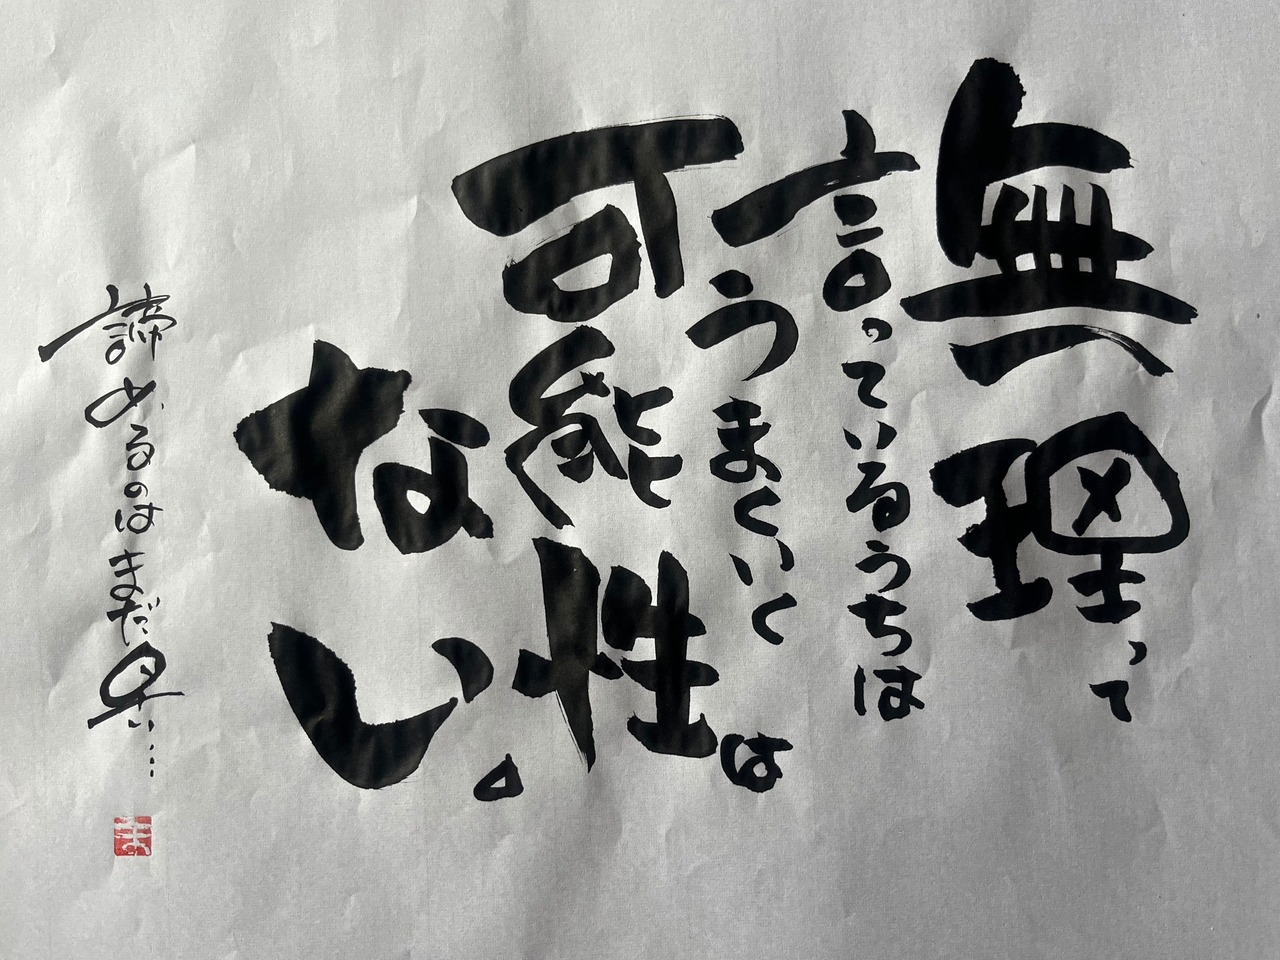 無理って
言っているうちは
うまくいく
可能性は
ない。
諦めるのはまだ早い…